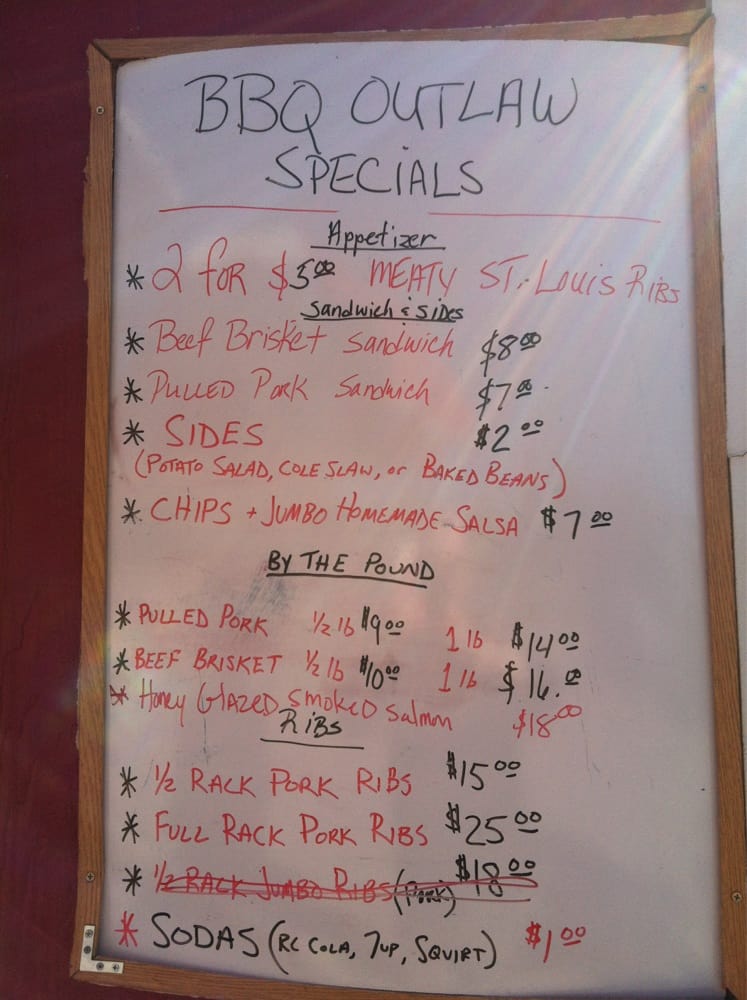 BBQ OUTLAW
SPECIALS
Appetizer
* 2 for $5.00 MEATY ST. Louis RiBS
Sandwich & Sides
* Beef Brisket Sandwich $8.00
* PULLED Pork Sandwich $7.00
* SIDES $2.00
(POTATO SALAD, COLE SLAW, or BAKED BEANS)
* CHIPS + JUMBO HOMEMADE SALSA $7.00
BY THE POUND
* PULLED PORK 1/2 lb $9.00 1 lb $14.00
* BEEF BRISKET 1/2 lb $10.00 1 lb $16.00
* Honey Glazed Smoked Salmon $18.00
RiBS
* 1/2 RACK PORK RIBS $15.00
* FULL RACK PORK RIBS $25.00
* 1/2 RACK JUMBO RIBS (PORK) $18.00
* SODAS (RC COLA, 7UP, SQUIRT) $1.00